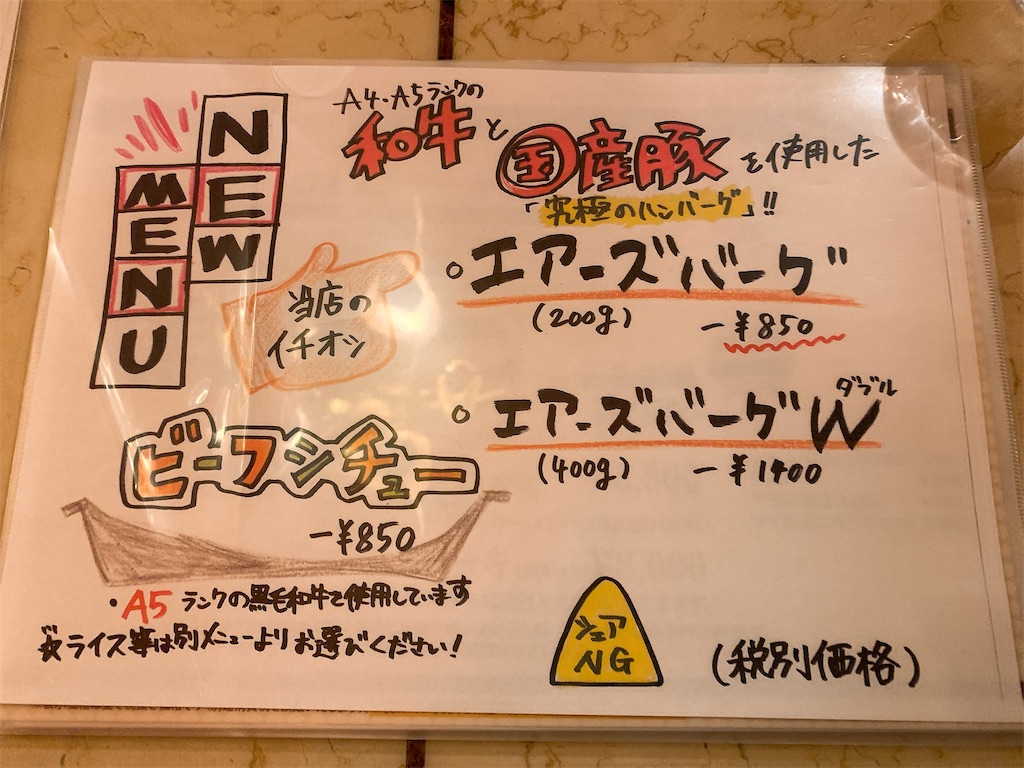 NEW
MENU
A4・A5ランクの
和牛と国産豚を使用した
「究極のハンバーグ」!!
当店の
イチオシ
・エアーズバーグ
(200g) -¥850
・エアーズバーグW
ダブル
(400g) -¥1400
ビーフシチュー
-¥850
・A5ランクの黒毛和牛で使用しています
※ライス等は別メニューよりお選びください!
シェア
NG
(税別価格)